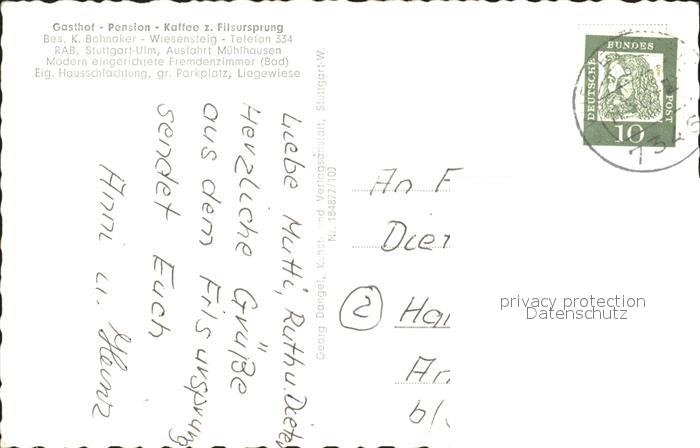 Gasthof - Pension - Kaffee z. Filsursprung
Bes. K. Bohnaker - Wiesensteig - Telefon 334
RAB. Stuttgart-Ulm, Ausfahrt Mühlhausen
Modern eingerichtete Fremdenzimmer (Bad)
Eig. Hausschlachtung, gr. Parkplatz, Liegewiese
Liebe Mutti, Ruth u. Dieter
Herzliche Grüße
aus dem Filsursprung
sendet Euch
Anni u. Heinz
Georg Dangel, Kunst- und Verlagsanstalt, Stuttgart-W.
Nr. 184877/100
DEUTSCHE
BUNDES
POST
10
An F
Diet
2 Ha
An
b/
privacy protection
Datenschutz